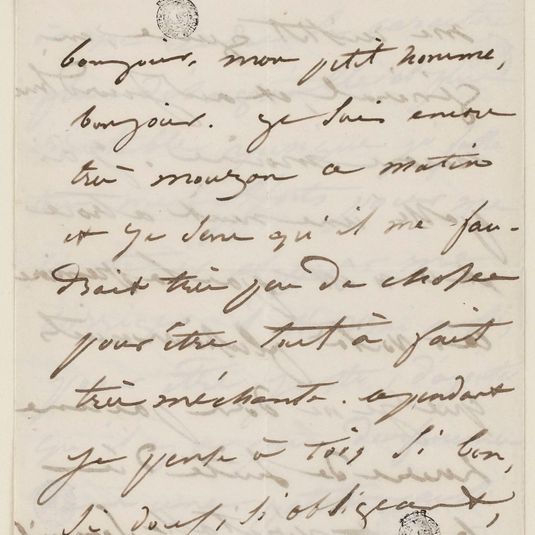 bonjour, mon petit homme,
bonjour. Je suis encore
très mouzon ce matin
et je sens qu'il me fau-
drait très peu de chose
pour être tout à fait
très méchante. cependant
je pense à toi, si bon,
si doux, si obligeant,